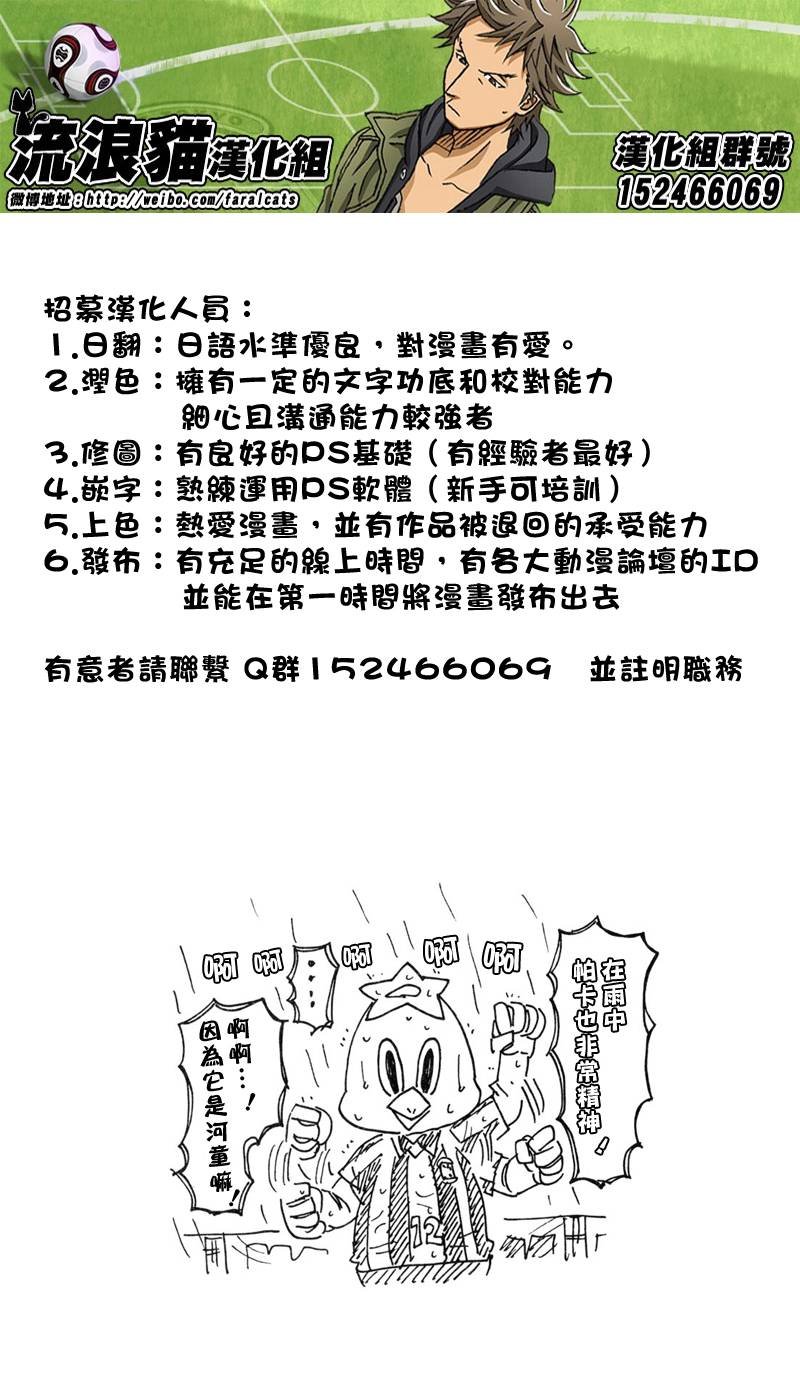 流浪貓漢化組
微博地址：http://weibo.com/faralcats
漢化組群號
152466069
招募漢化人員：
1.日翻：日語水準優良，對漫畫有愛。
2.潤色：擁有一定的文字功底和校對能力
細心且溝通能力較強者
3.修圖：有良好的PS基礎（有經驗者最好）
4.嵌字：熟練運用PS軟體（新手可培訓）
5.上色：熱愛漫畫，並有作品被退回的承受能力
6.發布：有充足的線上時間，有各大動漫論壇的ID
並能在第一時間將漫畫發布出去
有意者請聯繫 Q群152466069 並註明職務
在雨中
帕卡也非常精神！
啊
啊
啊
啊
啊
……
啊啊…！
因為它是河童嘛！
12